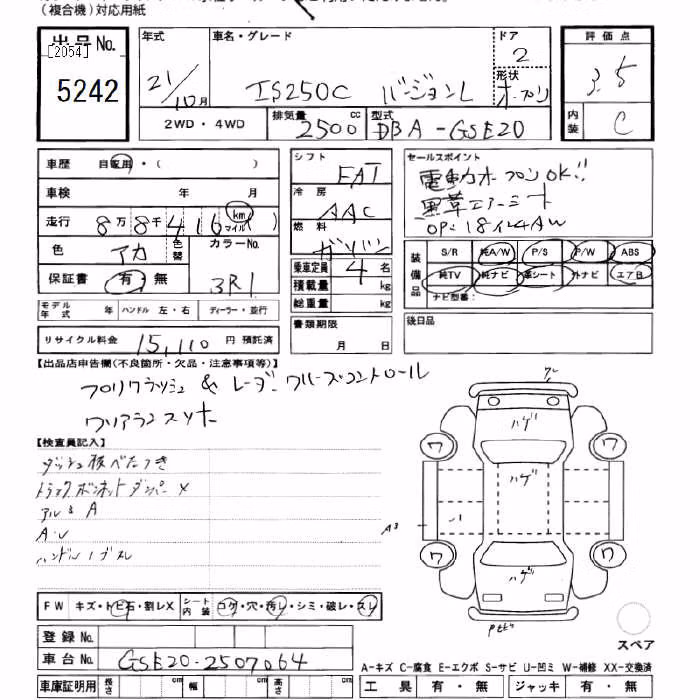 (複合機)対応用紙
出品No.
[2054]
5242
年式
21/10月
車名・グレード
IS250C バージョンL
ドア
2
形状
オープン
評価点
3.5
内装
C
2WD・4WD
排気量
2500 cc
型式
DBA-GSE20
車歴 自家用・( )
車検 年 月
走行 8万8千416 km マイル( )
色 アカ 色替
カラーNo.
3R1
保証書 有・無
モデル年式 年 ハンドル 左・右 ディーラー・並行
リサイクル料金 15,110 円 預託済
シフト
FAT
冷房
AAC
燃料
ガソリン
乗車定員 4 名
積載量 kg
総重量 kg
書類期限
月 日
セールスポイント
電動オープンOK!!
黒革エアーシート
OP・18インチAW
装備品
S/R 純A/W P/S P/W ABS
純TV 純ナビ 革シート 外ナビ エアB
ナビ型番:
後日品
【出品店申告欄(不良箇所・欠品・注意事項等)】
プリクラッシュ & レーダークルーズコントロール
クリアランスソナー
【検査員記入】
ダッシュ板べたつき
トランクボンネットダンパー×
アルミ A
A・U
ハンドルノブスレ
FW キズ・トビ石・割レX
シート内装 コゲ・穴・汚レ・シミ・破レ・スレ
登録No.
車台No. GSE20-2507064
車庫証明用 長さ cm 幅 cm 高さ cm
ハゲ
ハゲ
ハゲ
ワ
ワ
ワ
ワ
A3
スペア
A-キズ C-腐食 E-エクボ S-サビ U-凹ミ W-補修 XX-交換済
工具 有・無 ジャッキ 有・無